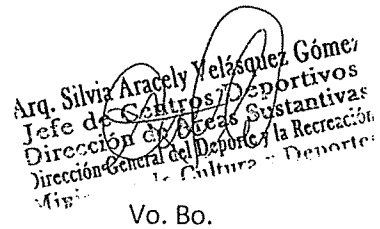 Arq. Silvia Aracely Velásquez Gómez
Jefe de Centros Deportivos
Dirección de Áreas Sustantivas
Dirección General del Deporte y la Recreación
Cultura y Deportes
Vo. Bo.